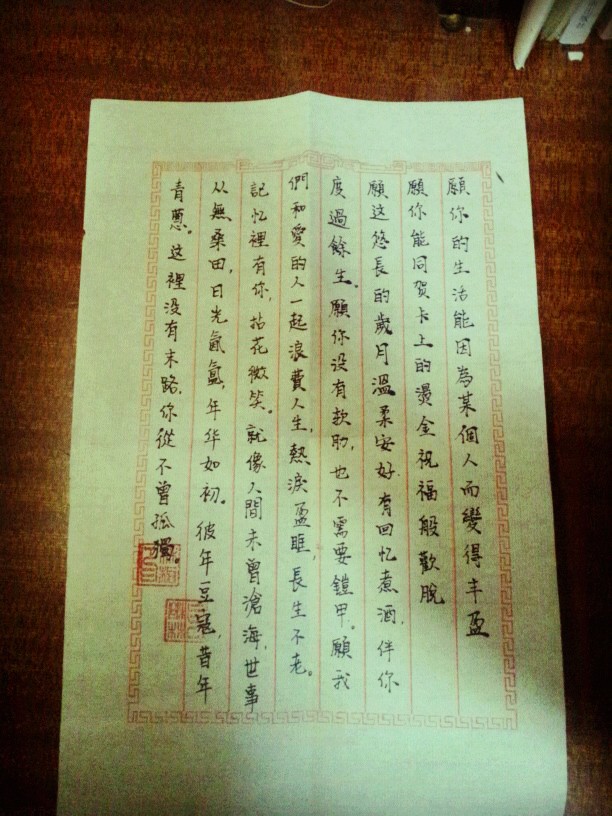 願你的生活能因為某個人而變得丰盈
願你能同贺卡上的燙金祝福般歡脫
願这悠長的歲月溫柔安好，有回忆煮酒，伴你
度過餘生。願你没有软肋，也不需要鎧甲。願我
們和愛的人一起浪費人生，熱淚盈眶，長生不老。
記忆裡有你，拈花微笑。就像人間未曾滄海，世事
从無桑田，日光氤氳，年华如初。彼年豆寇，昔年
青蔥。这裡没有末路，你從不曾孤獨。